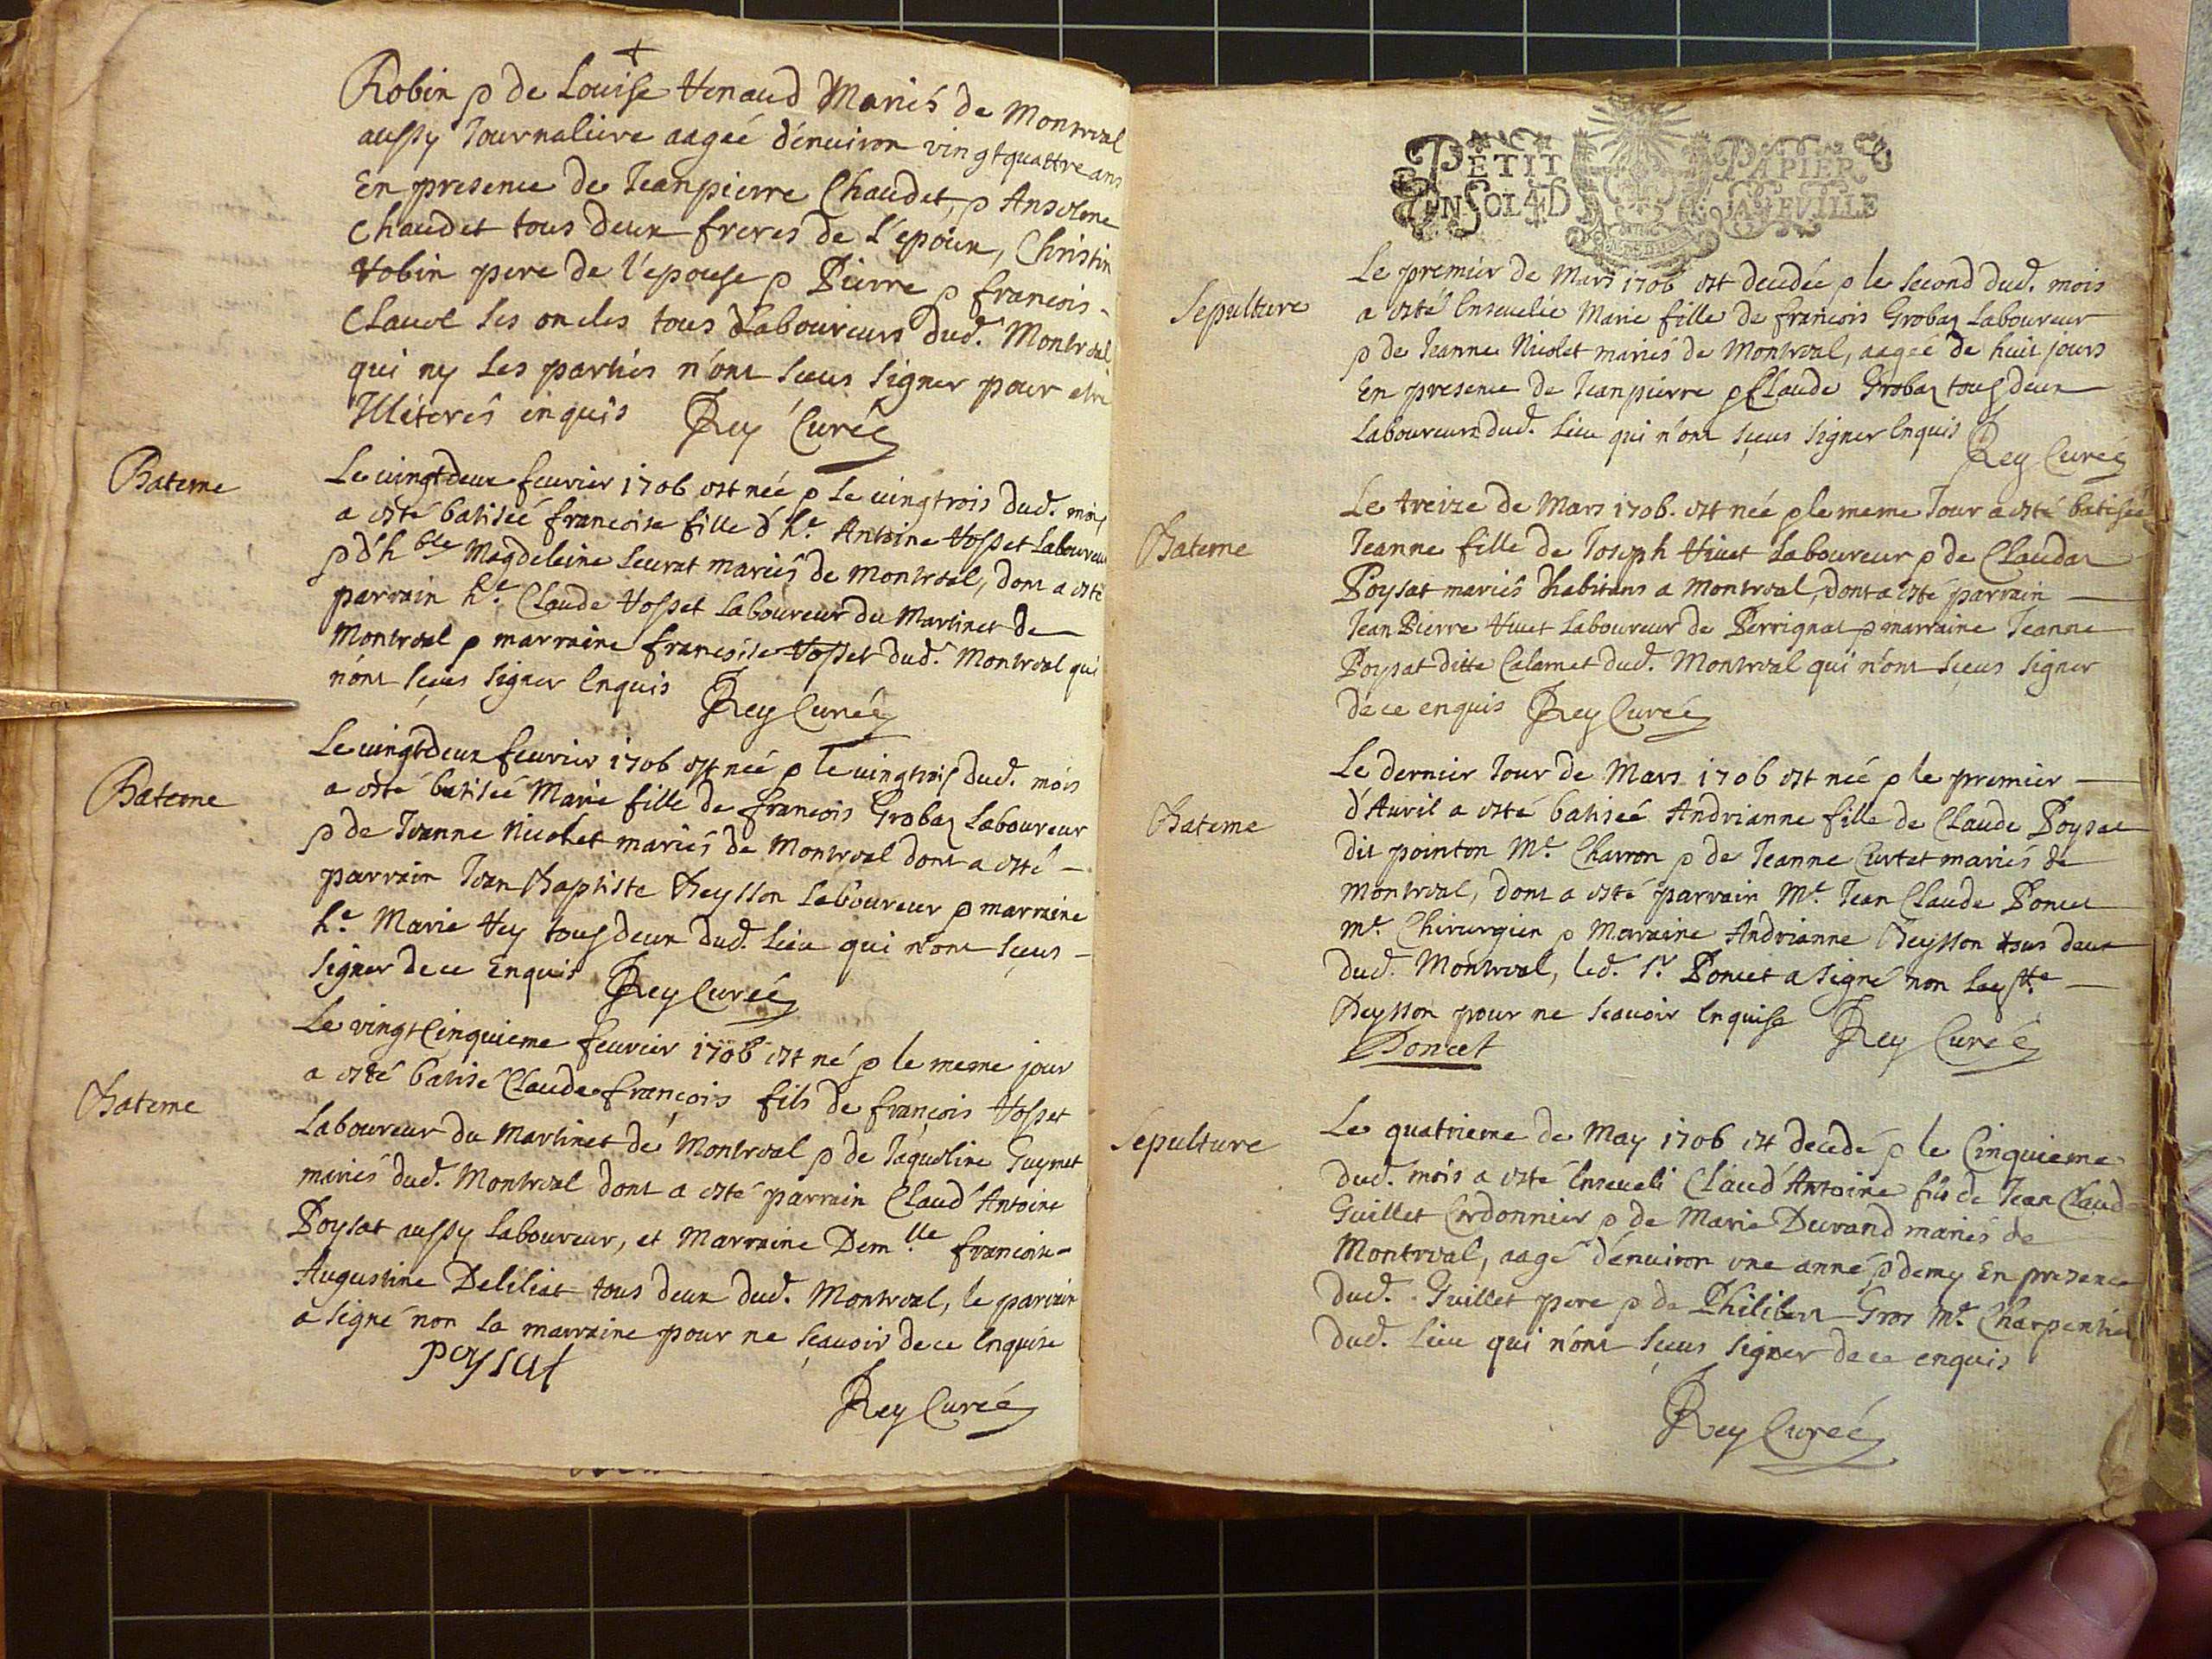 Robin & de Louise Venaud Mariés de Montreal
aussy Journaliere aageé d'enuiron vingtquattre ans
En presence de Jeanpierre Chaudet, & Anselme
Chaudet tous deux freres de l'epoux, Christin
robin pere de l'epouse & Pierre & francois
ses oncles tous Laboureurs dud. Montreal
qui ny Les parties n'ont sceus signer pour etre
Illiterés enquis Rey Curéé
Bateme
Le uingtdeux feurier 1706 est neé & Le uingtrois dud. mois
a esté batiseé francoise fille d'h.e Antoine Vosset Laboureur
& d'h.ble Magdeleine Leurat mariés de Montreal, dont a esté
parrain h.e Claude Vosset Laboureur du Martinet de
Montreal & marraine francoise Vosset dud. Montreal qui
n'ont sçeus signer Enquis Rey Curéé
Bateme
Le uingtdeux feurier 1706 est neé & le uingtrois dud. mois
a esté batiseé Marie fille de francois Grobaz Laboureur
& de Jeanne Nicolet mariés de Montreal dont a esté
parrain Jean Baptiste Beysson Laboureur & marraine
h.e Marie Vey tousdeux dud. Lieu qui n'ont sçeus
signer de ce Enquis Rey Curéé
Bateme
Le vingt Cinquieme feurier 1706 est né & le meme jour
a esté batisé Claude françois fils de françois Vosset
Laboureur du Martinet de Montreal & de Jaqueline Guynet
mariés dud. Montreal dont a esté parrain Claud'Antoine
Poysat aussy Laboureur, et Marraine Dem.lle francoise
Augustine Deliliat tous deux dud. Montreal, le parrain
a signé non la marraine pour ne sçauoir de ce Enquise
poysat
Rey Curéé
PETIT PAPIER
UN SOL 4D LA FEVILLE
Sepulture
Le premier de Mars 1706 est decedée & le second dud. mois
a esté Enseuelie Marie fille de francois Grobaz Laboureur
& de Jeanne Nicolet mariés de Montreal, aageé de huit jours
En presence de Jeanpierre & Claude Grobaz tousdeux
Laboureurs dud. Lieu qui n'ont sçeus signer Enquis Rey Curéé
Bateme
Le treize de Mars 1706. est neé & le meme Jour a esté batiseé
Jeanne fille de Joseph Viuet Laboureur & de Clauda
Poysat mariés habitans a Montreal, dont a esté parrain
Jean Pierre Viuet Laboureur de Perrignat & marraine Jeanne
Poysat ditte Calamet dud. Montreal qui n'ont sçeus signer
de ce enquis Rey Curéé
Bateme
Le dernier Jour de Mars 1706 est neé & le premier
d'Auril a esté batiseé Andrianne fille de Claude Poysat
dit pointon M.e Charron & de Jeanne Curtet mariés de
Montreal, dont a esté parrain M.e Jean Claude Poncet
m.e Chirurgien & Marraine Andrianne Beysson tous deux
dud. Montreal, led. S.r Poncet a signé non
Beysson pour ne sçauoir Enquise Rey Curéé
Poncet
Sepulture
Le quatrieme de May 1706 est decedé & le Cinquieme
dud. mois a esté Enseueli Claud'Antoine fils de Jean Claude
Guillet Cordonnier & de Marie Durand mariés de
Montreal, aagé d'enuiron une anné & demy En presence
dud. Guillet pere & de Philibert Gros M.e Charpentier
dud. Lieu qui n'ont sçeus signer de ce enquis
Rey Curéé